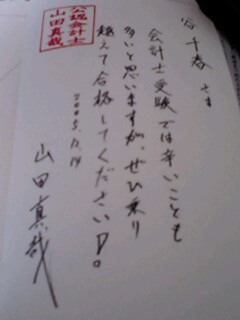 谷 千春 さま
会計士受験では辛いことも
多いと思いますが、ぜひ乗り
越えて合格してくださいね。
2005.12.14
山田真哉
公認会計士
山田真哉